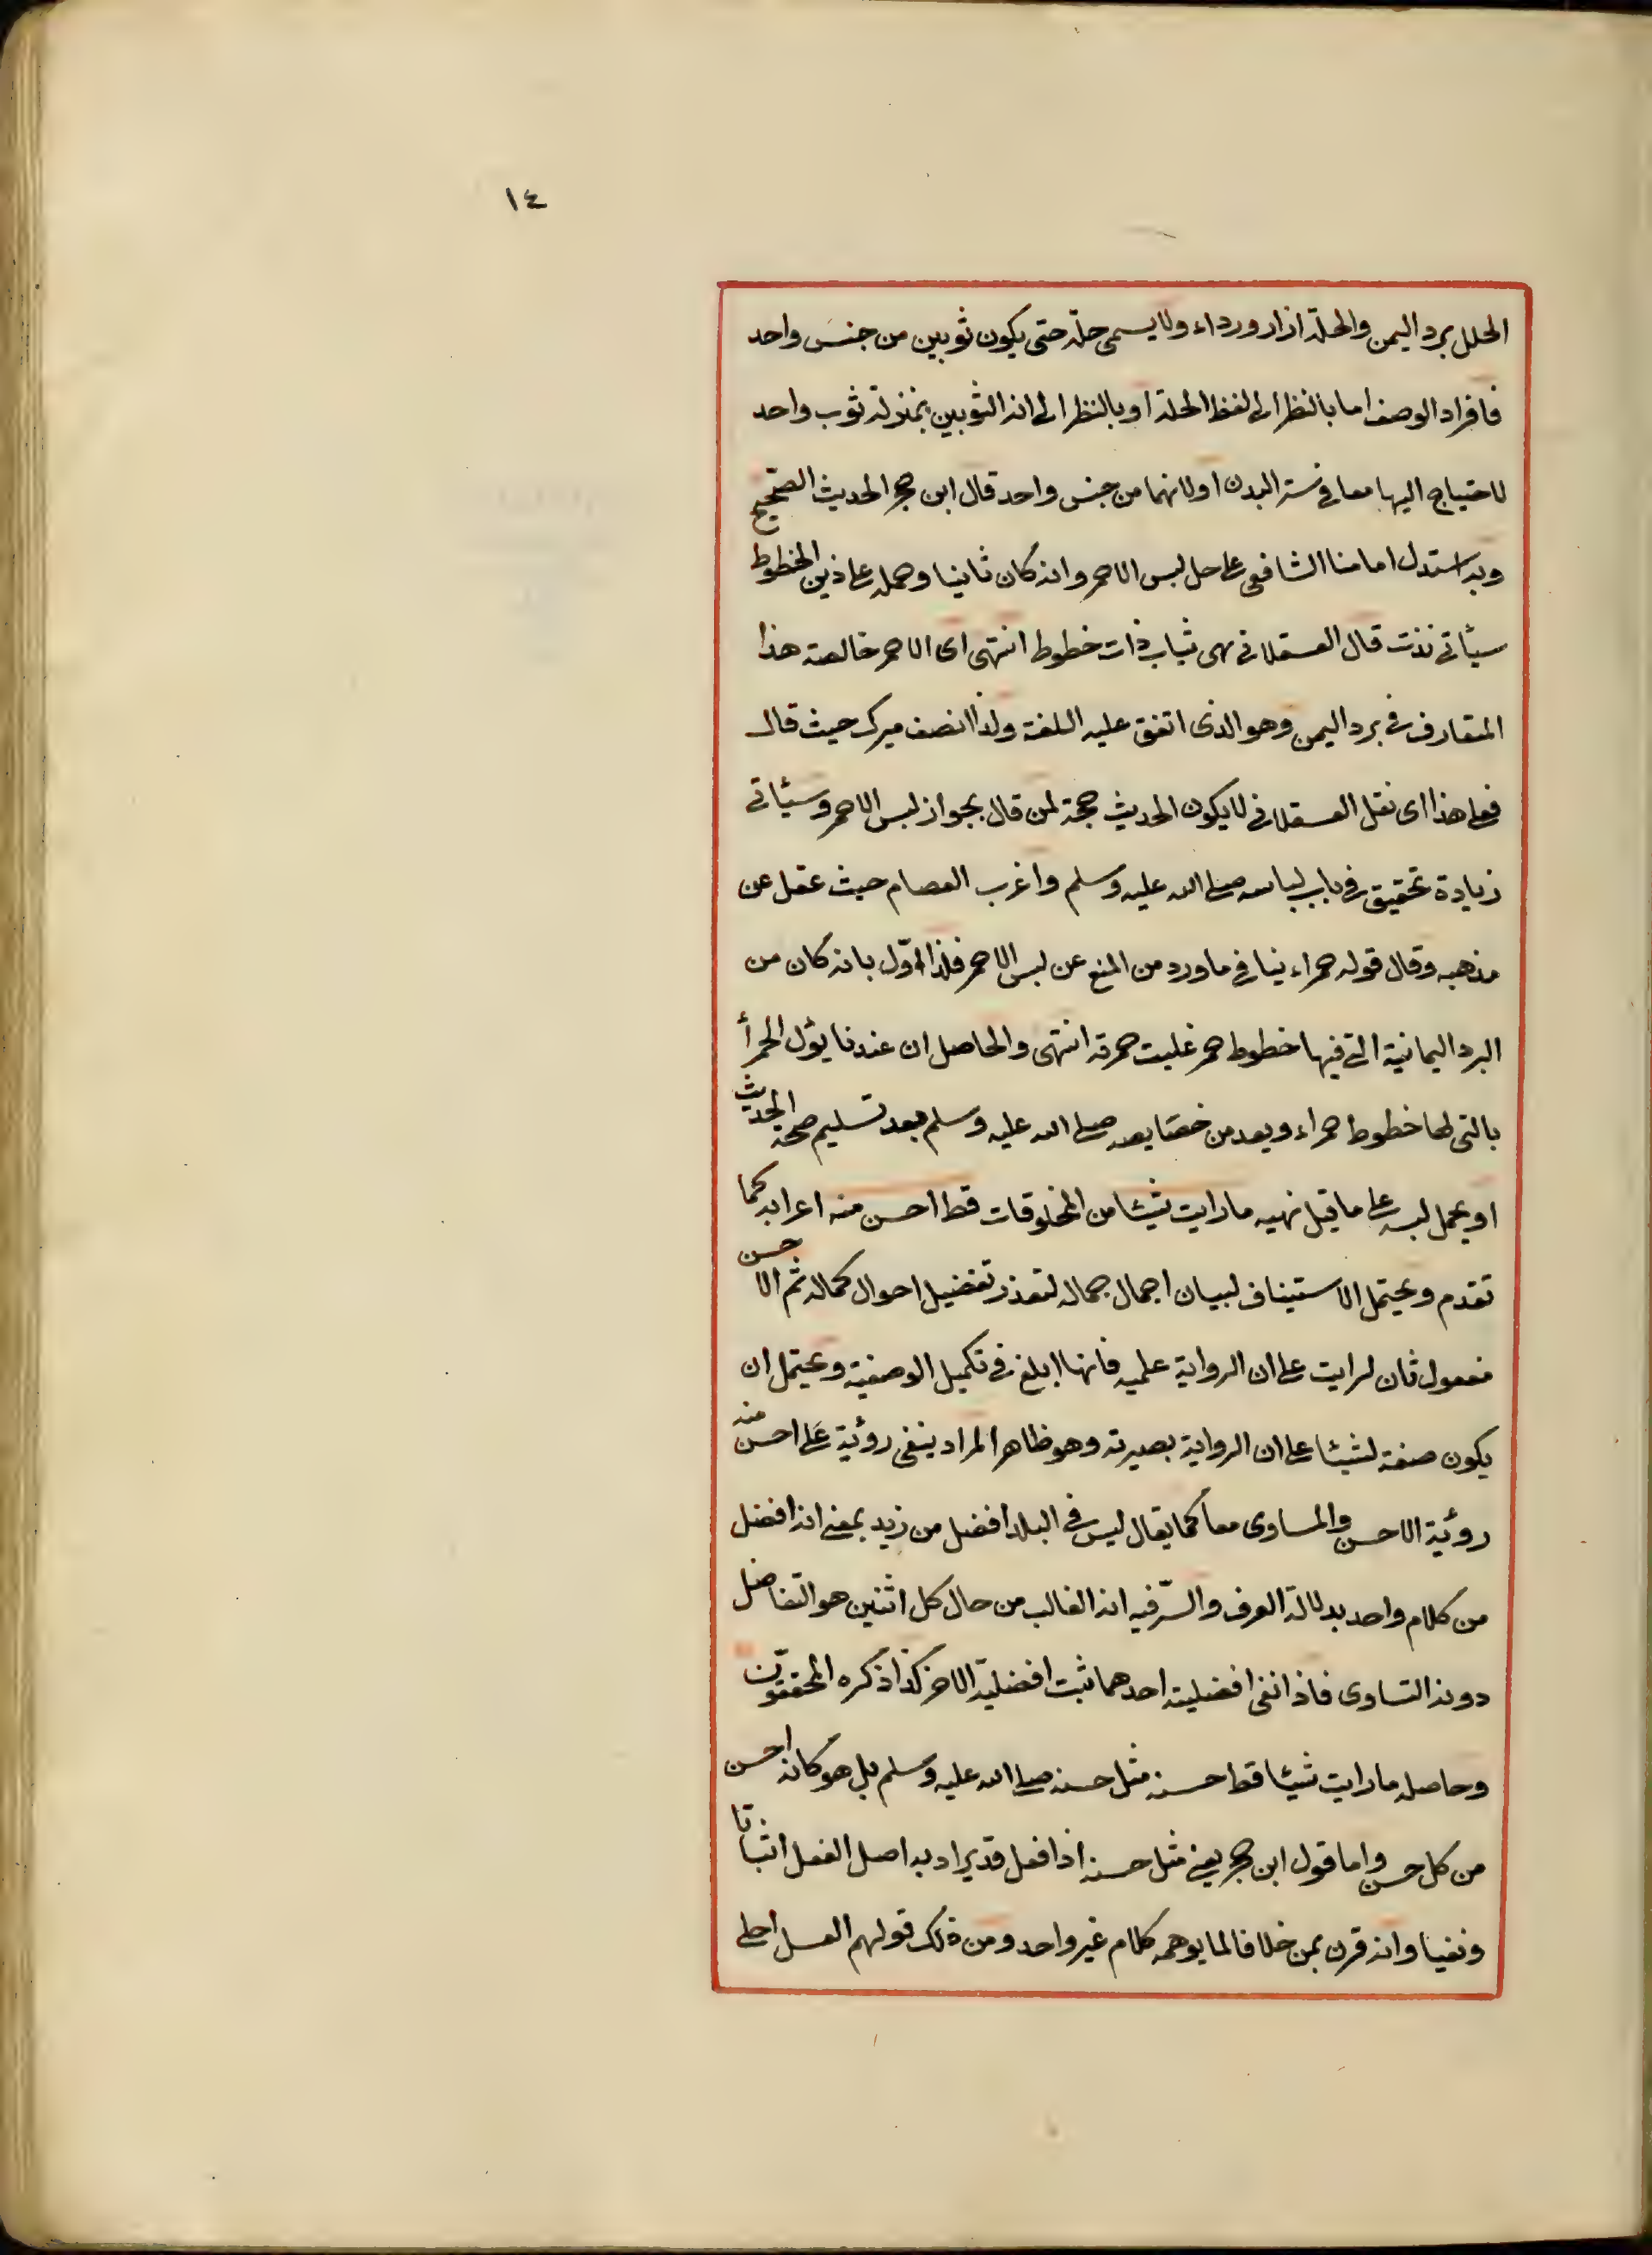 ١٤
الحلل برد اليمن والحلة ازار ورداء ولا يسمى حلة حتى يكون ثوبين من جنس واحد
فافراد الوصف اما بالنظر الى لفظ الحلة او بالنظر الى ان الثوبين بمنزلة ثوب واحد
للاحتياج اليها معا في ستر البدن او لانهما من جنس واحد قال ابن حجر الحديث الصحيح
وبه استدل امامنا الشافعي على حل لبس الاحمر وان كان ثانيا وحمله على ذين الخطوط
سيأتي قال العسقلاني هى ثياب ذات خطوط انتهى اى لا حمر خالصة هذا
المتعارف في برد اليمن وهو الذى اتفق عليه اللغة ولذا انصف ميرك حيث قال
فعلى هذا اى نقل العسقلاني لا يكون الحديث حجة لمن قال بجواز لبس الاحمر وسيأتي
زيادة تحقيق في باب لباسه صلى الله عليه وسلم واغرب العصام حيث غفل عن
مذهبه وقال قوله حمراء ينافي ما ورد من المنع عن لبس الاحمر فلذا اوّل بانه كان من
البرد اليمانية التي فيها خطوط حمر غلبت حمرته انتهى والحاصل ان عندنا يؤل الحمرأ
بالتى لها خطوط حمراء ويعد من خصايصه صلى الله عليه وسلم بعد تسليم صحة الحديث
او يحمل لبسه على ما قبل نهيه ما رايت شيئا من المخلوقات قط احسن منه اعرابه كما
تقدم ويحتمل الاستيناف لبيان اجمال جماله لتعذر تفضيل احوال كماله ثم الاحسن
مفعول ثان لرايت على ان الرواية علميه فانها ابلغ في تكميل الوصفية ويحتمل ان
يكون صفة لشيئا على ان الرواية بصيرته وهو ظاهر المراد ينفى روئية على احسن منه
روئية الاحسن والمساوى معا كما يقال ليس في البلد افضل من زيد بمعنى انه افضل
من كلام واحد بدلالة العرف والسّر فيه ان الغالب من حال كل اثنين هو التفاضل
دون التساوى فاذا نفى افضلية احدهما ثبت افضلية الاخر كذا ذكره المحققون
وحاصله ما رايت شيئا قط حسنه مثل حسنه صلى الله عليه وسلم بل هو كان احسن
من كل حسن واما قول ابن حجر يعني مثل حسنه اذ افعل قد يراد به اصل الفعل اثباتا
ونفيا وان قرن بمن خلافا لما يوهمه كلام غير واحد ومن ذلك قولهم العسل احلى